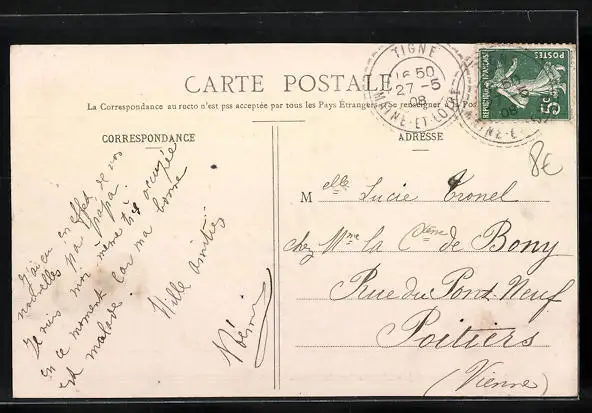 CARTE POSTALE
La Correspondance au recto n'est pas acceptée par tous les Pays Étrangers (Se renseigner à la Poste)
CORRESPONDANCE
J'ai eu en effet de vos
nouvelles par papa.
Je suis moi même très occupée
en ce moment car ma bonne
est malade.
Mille amitiés
ADRESSE
Melle Lucie Tronel
chez Mme la Ctesse de Bony
Rue du Pont-Neuf
Poitiers
(Vienne)
TIGNÉ
16 50
27 -5
08
MAINE-ET-LOIRE
REPUBLIQUE FRANÇAISE
POSTES
5c
8€